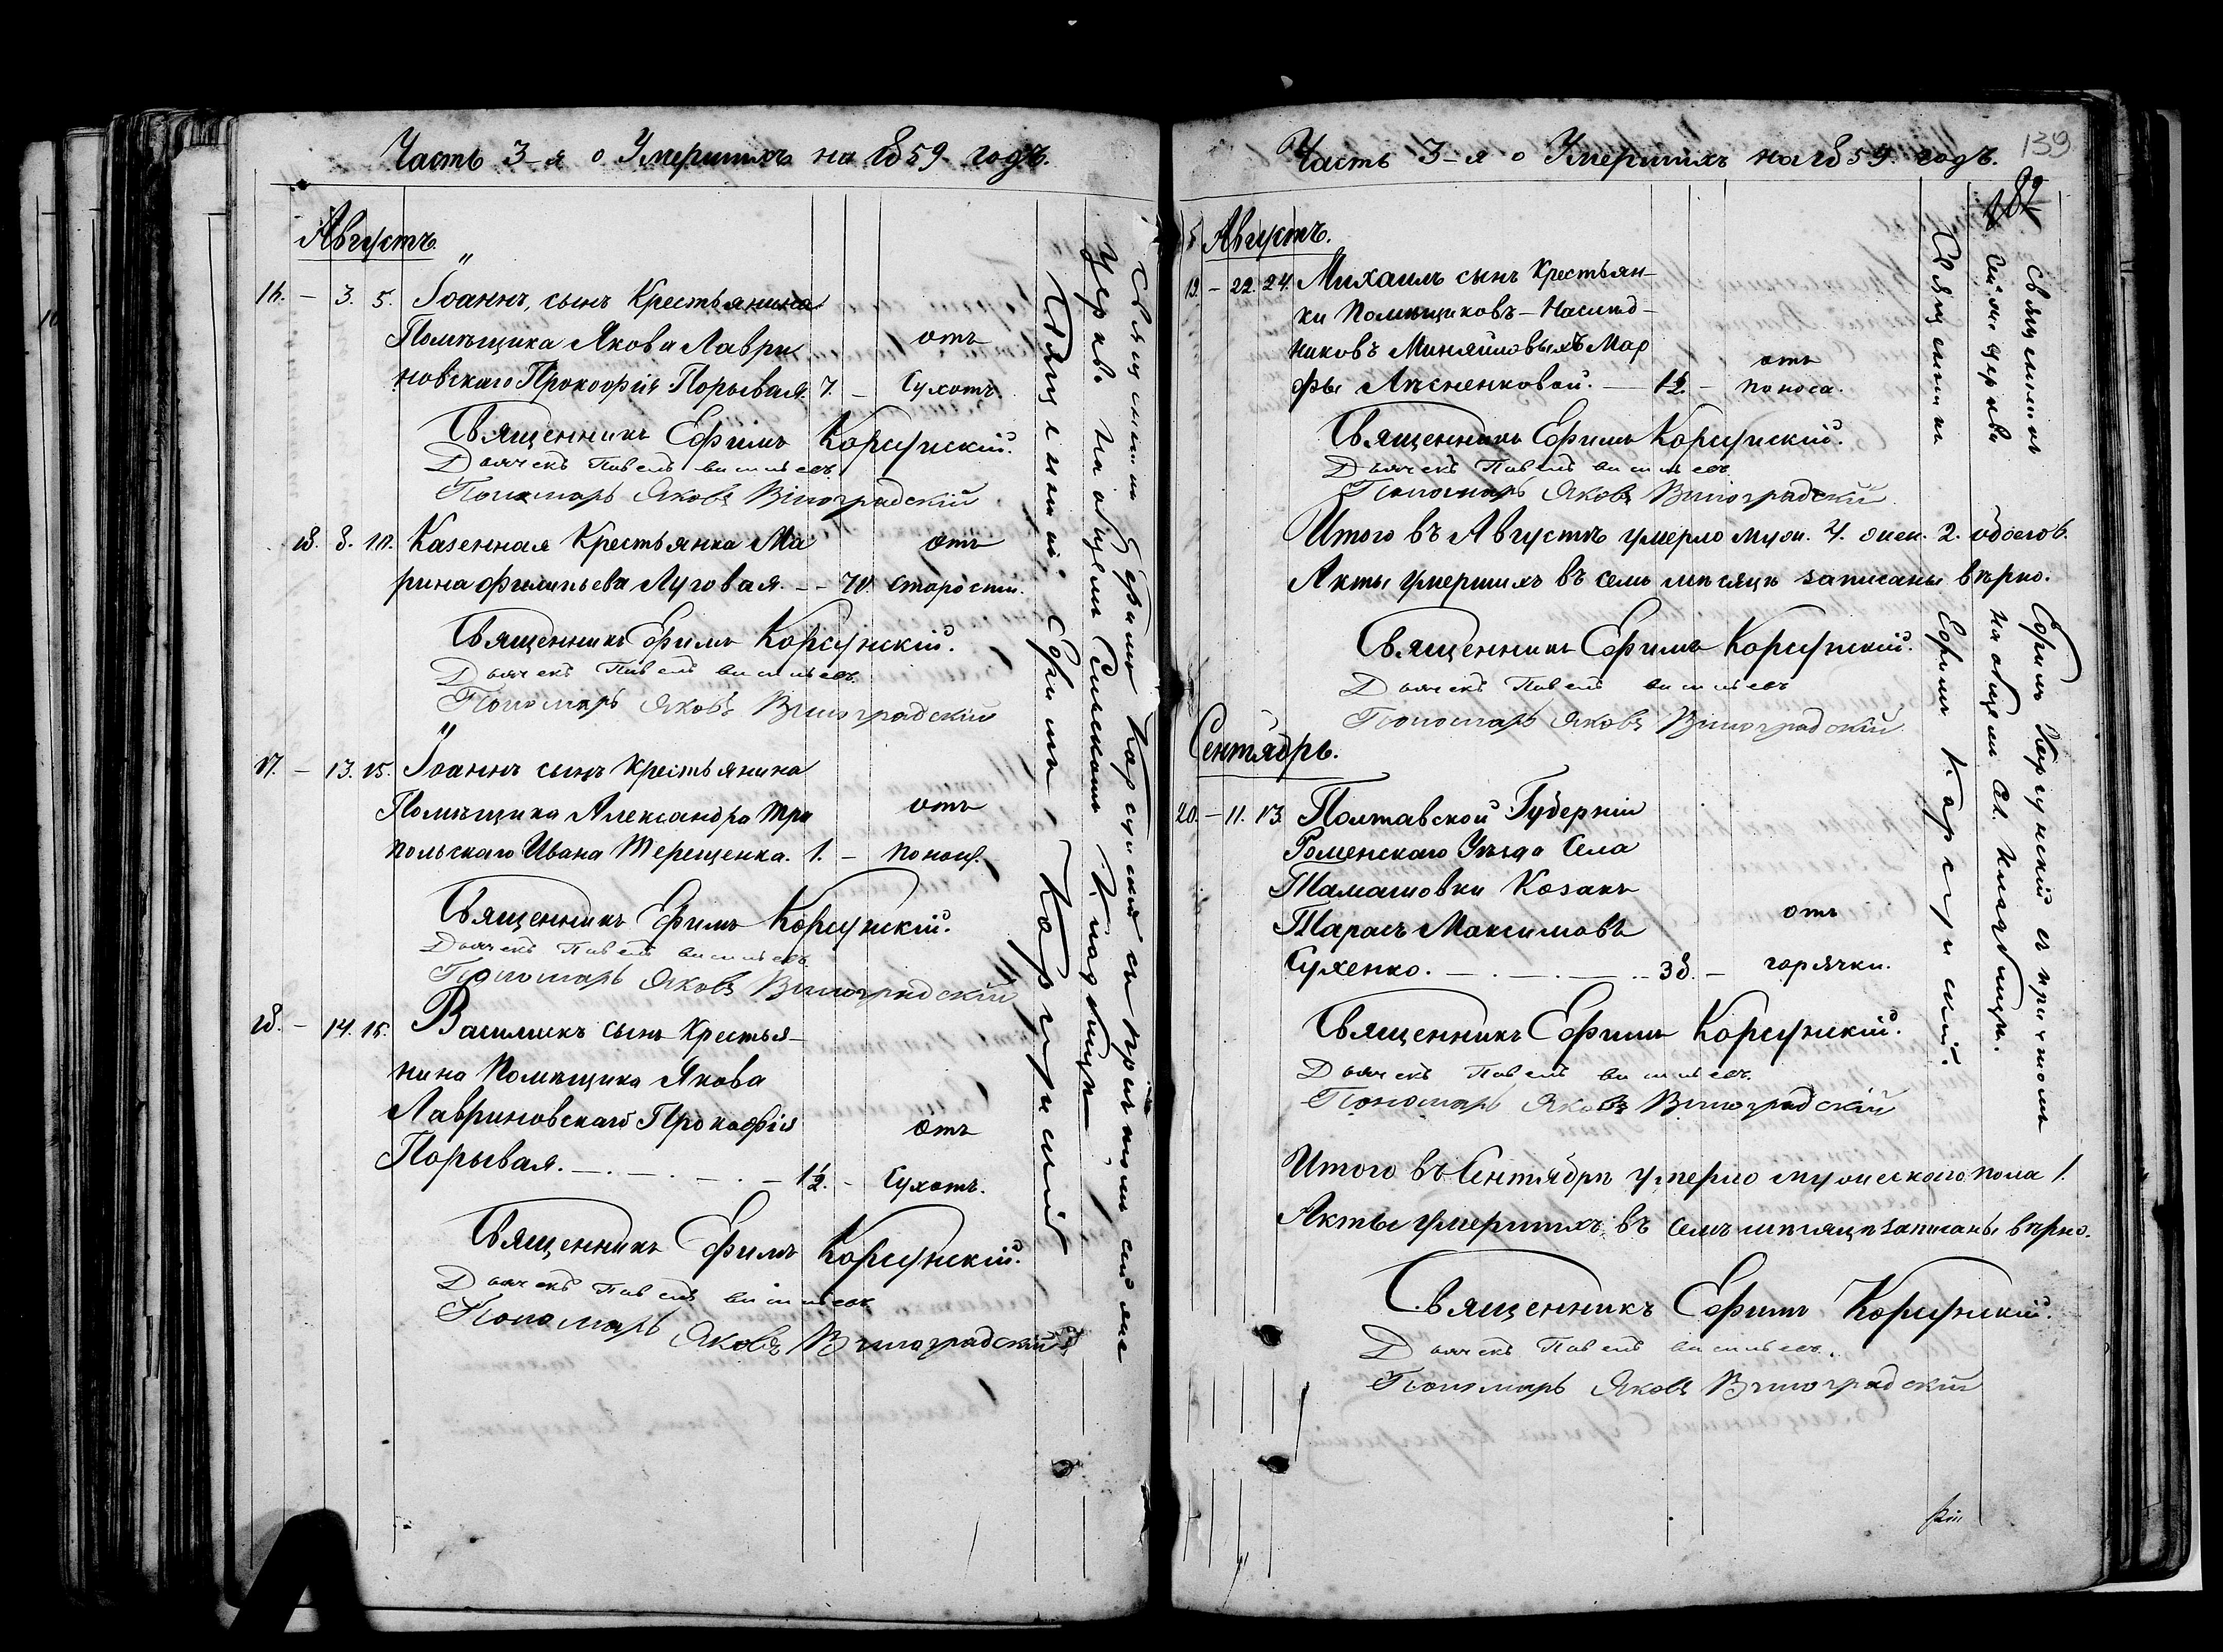 Часть 3-я о Умершихъ на 1859 годъ.
Августъ.
16. – 3. 5. Іоаннъ, сынъ Крестьянина
Помѣщика Якова Лаври отъ
новскаго Прокофія Порывая. 7. – Сухотъ.
Священникъ Ефимъ Корсунскій.
Дьячекъ Павелъ
Пономарь Яковъ Виноградскій
18. 8. 10. Казенная Крестьянка Ма отъ
рина Филипьева Луговая. – – 70. старости.
Священникъ Ефимъ Корсунскій.
Дьячекъ Павелъ
Пономарь Яковъ Виноградскій
17. – 13. 15. Іоаннъ сынъ Крестьянина
Помѣщика Александра Три отъ
польскаго Ивана Терещенка. 1. –
Священникъ Ефимъ Корсунскій.
Дьячекъ Павелъ
Пономарь Яковъ Виноградскій
18. – 14. 16. сынъ Крестья–
нина Помѣщика Якова
Лавриновскаго Прокофія отъ
Порывая. – . – . – . – 1½. – Сухотъ.
Священникъ Ефимъ Корсунскій.
Дьячекъ Павелъ
Пономарь Яковъ Виноградскій
Священникъ Ефимъ Корсунскій съ причтомъ сей же
Церкви на общемъ Сельскомъ Кладбищѣ
Священникъ Ефимъ Корсунскій
Часть 3-я о Умершихъ на 1859 годъ.
139
Августъ.
19. – 22. 24. Михаилъ сынъ Крестьян–
ки Помѣщиковъ – Наслѣд–
никовъ Мар отъ
фы Лѣсненковой. – 1½. – поноса.
Священникъ Ефимъ Корсунскій.
Дьячекъ Павелъ
Пономарь Яковъ Виноградскій
Итого въ Августѣ умерло муж. 4. жен. 2. обоего 6.
Акты умершихъ въ семъ мѣсяцѣ записаны вѣрно.
Священникъ Ефимъ Корсунскій.
Дьячекъ Павелъ
Пономарь Яковъ Виноградскій
Сентябрь.
20. – 11. 13. Полтавской Губерніи
Роменскаго Уѣзда Села
Козакъ
Тарасъ Максимовъ отъ
Сухенко. – . – . – . – 38. – горячки.
Священникъ Ефимъ Корсунскій.
Дьячекъ Павелъ
Пономарь Яковъ Виноградскій
Итого въ Сентябрѣ умерло мужескаго пола 1.
Акты умершихъ въ семъ мѣсяцѣ записаны вѣрно.
Священникъ Ефимъ Корсунскій.
Дьячекъ Павелъ
Пономарь Яковъ Виноградскій
Священникъ Ефимъ Корсунскій съ причтомъ
сей же церкви на общемъ Кладбищѣ.
Священникъ Ефимъ Корсунскій.